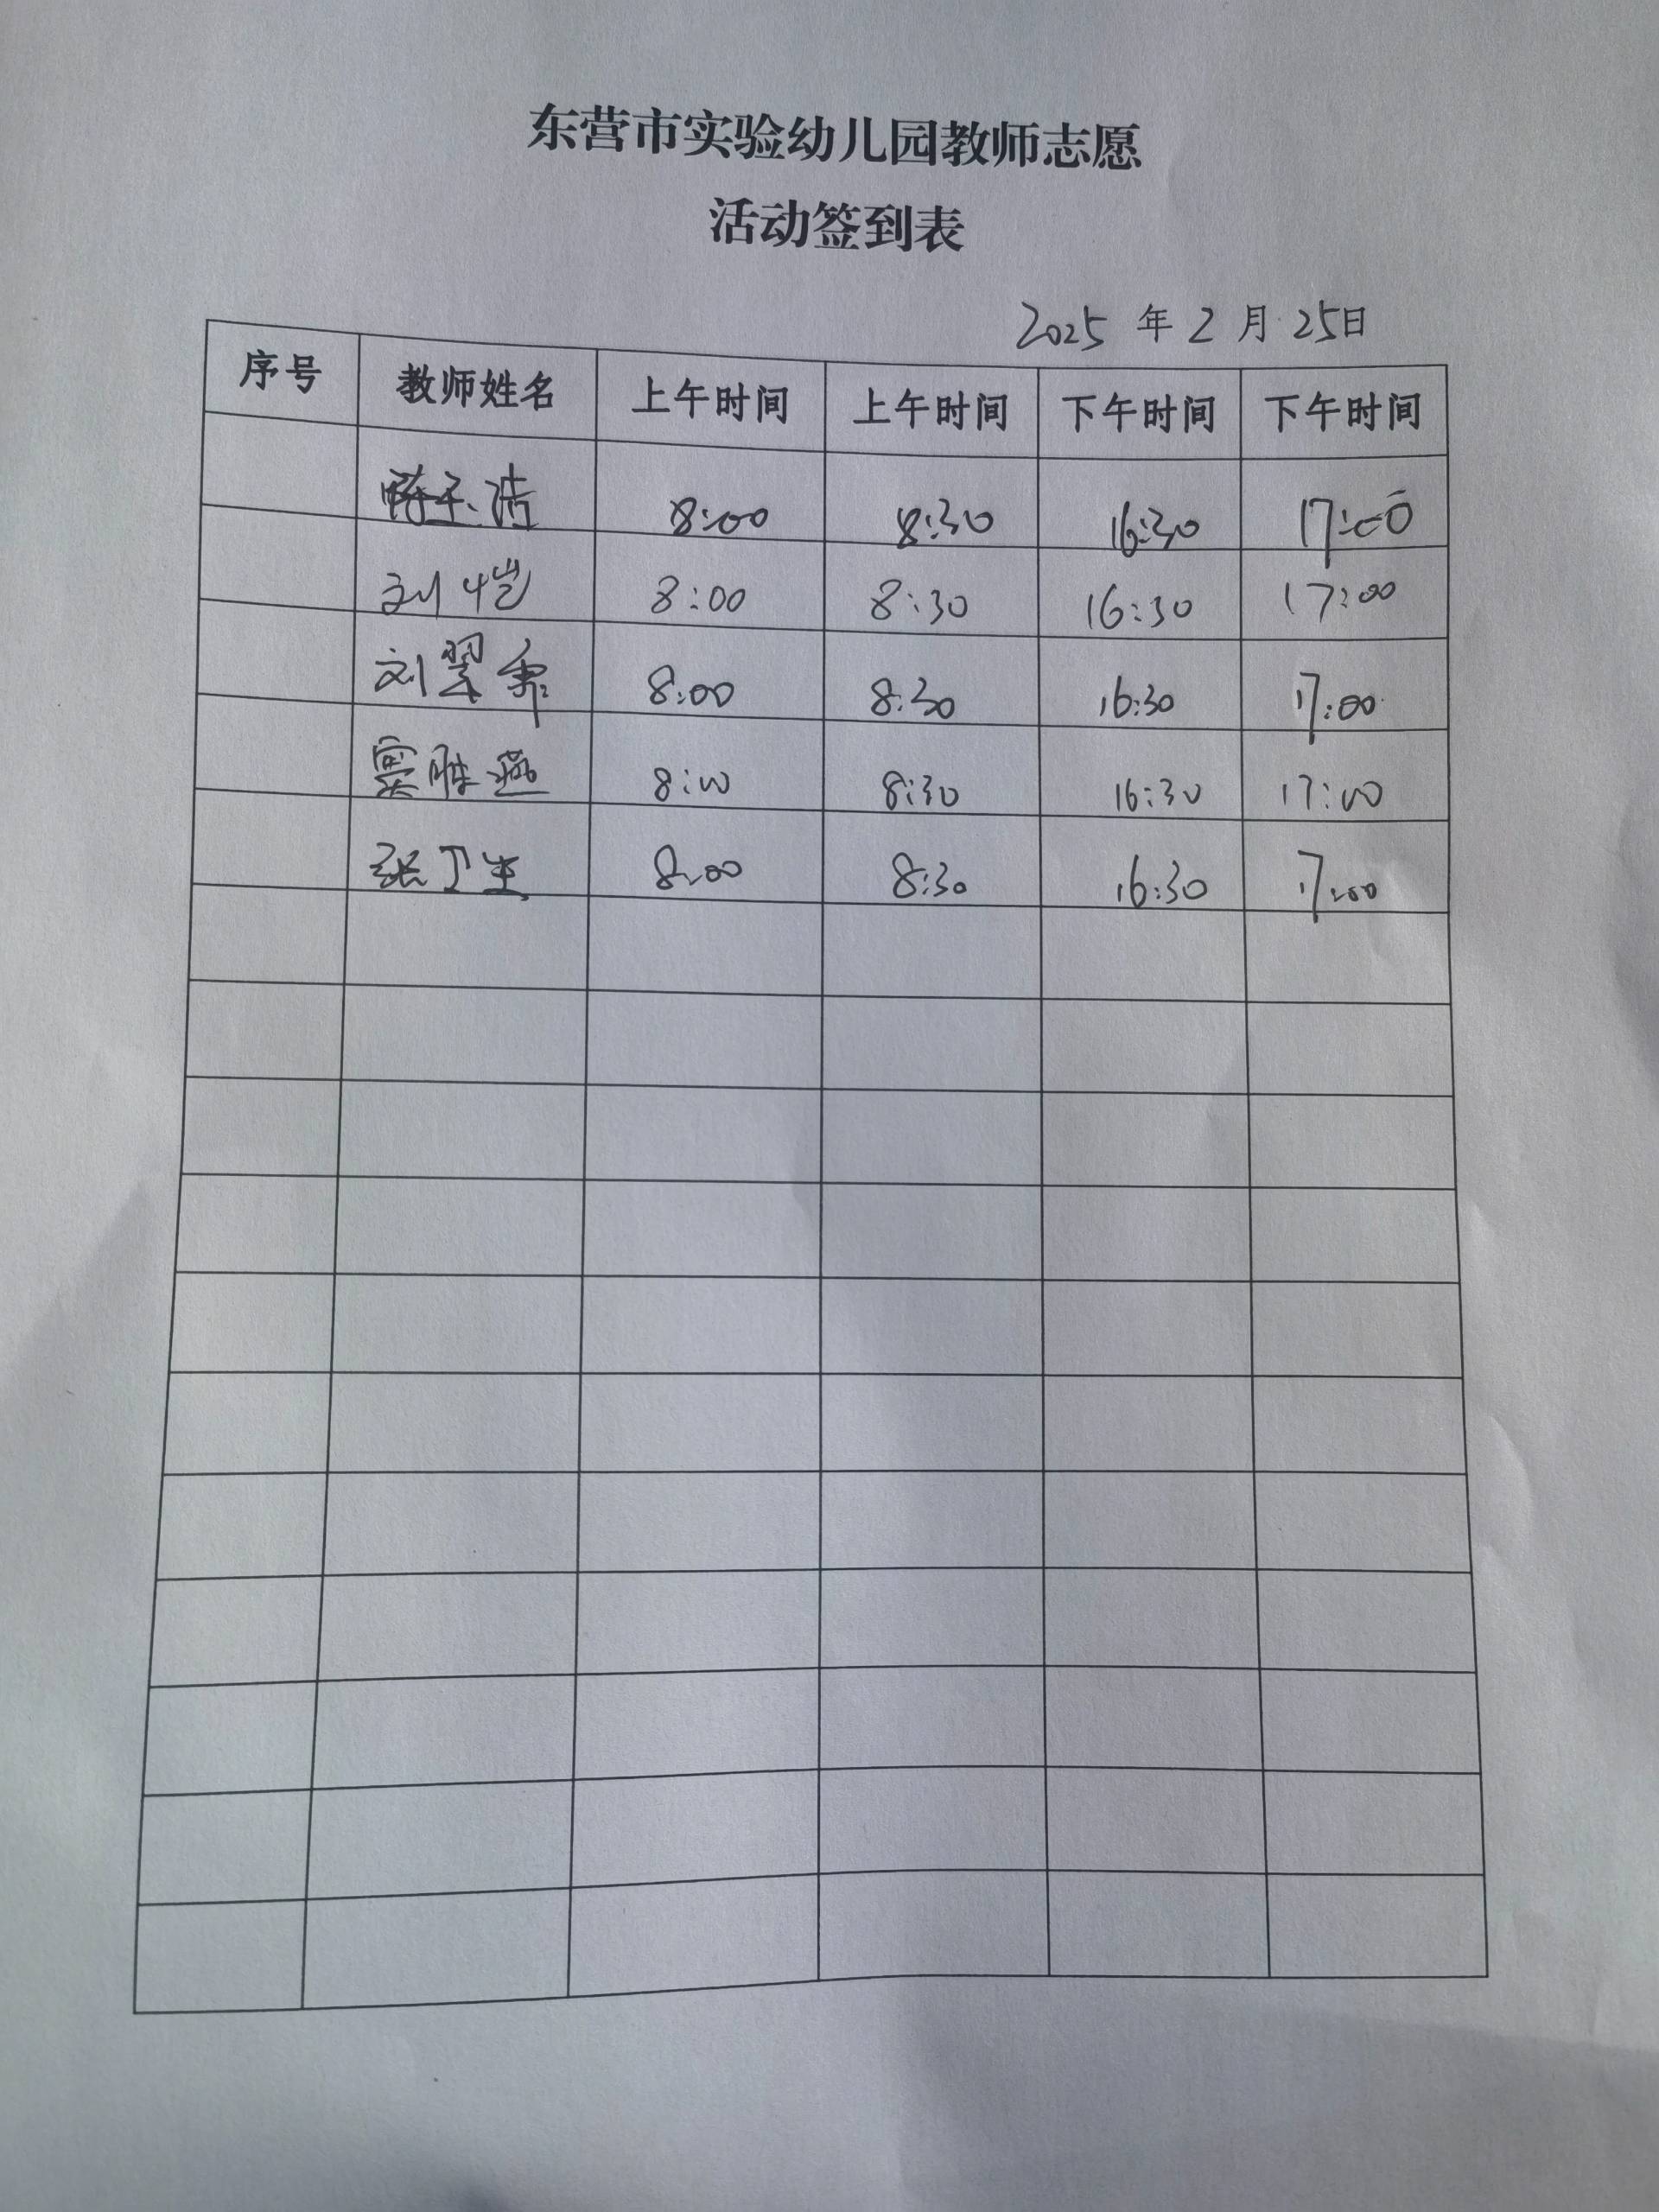 东营市实验幼儿园教师志愿
活动签到表
2025 年 2 月 25日
序号 教师姓名 上午时间 上午时间 下午时间 下午时间
8:00 8:30 16:30 17:00
刘恺 8:00 8:30 16:30 17:00
刘翠 8:00 8:30 16:30 17:00
窦胜燕 8:00 8:30 16:30 17:00
张卫生 8:00 8:30 16:30 17:00